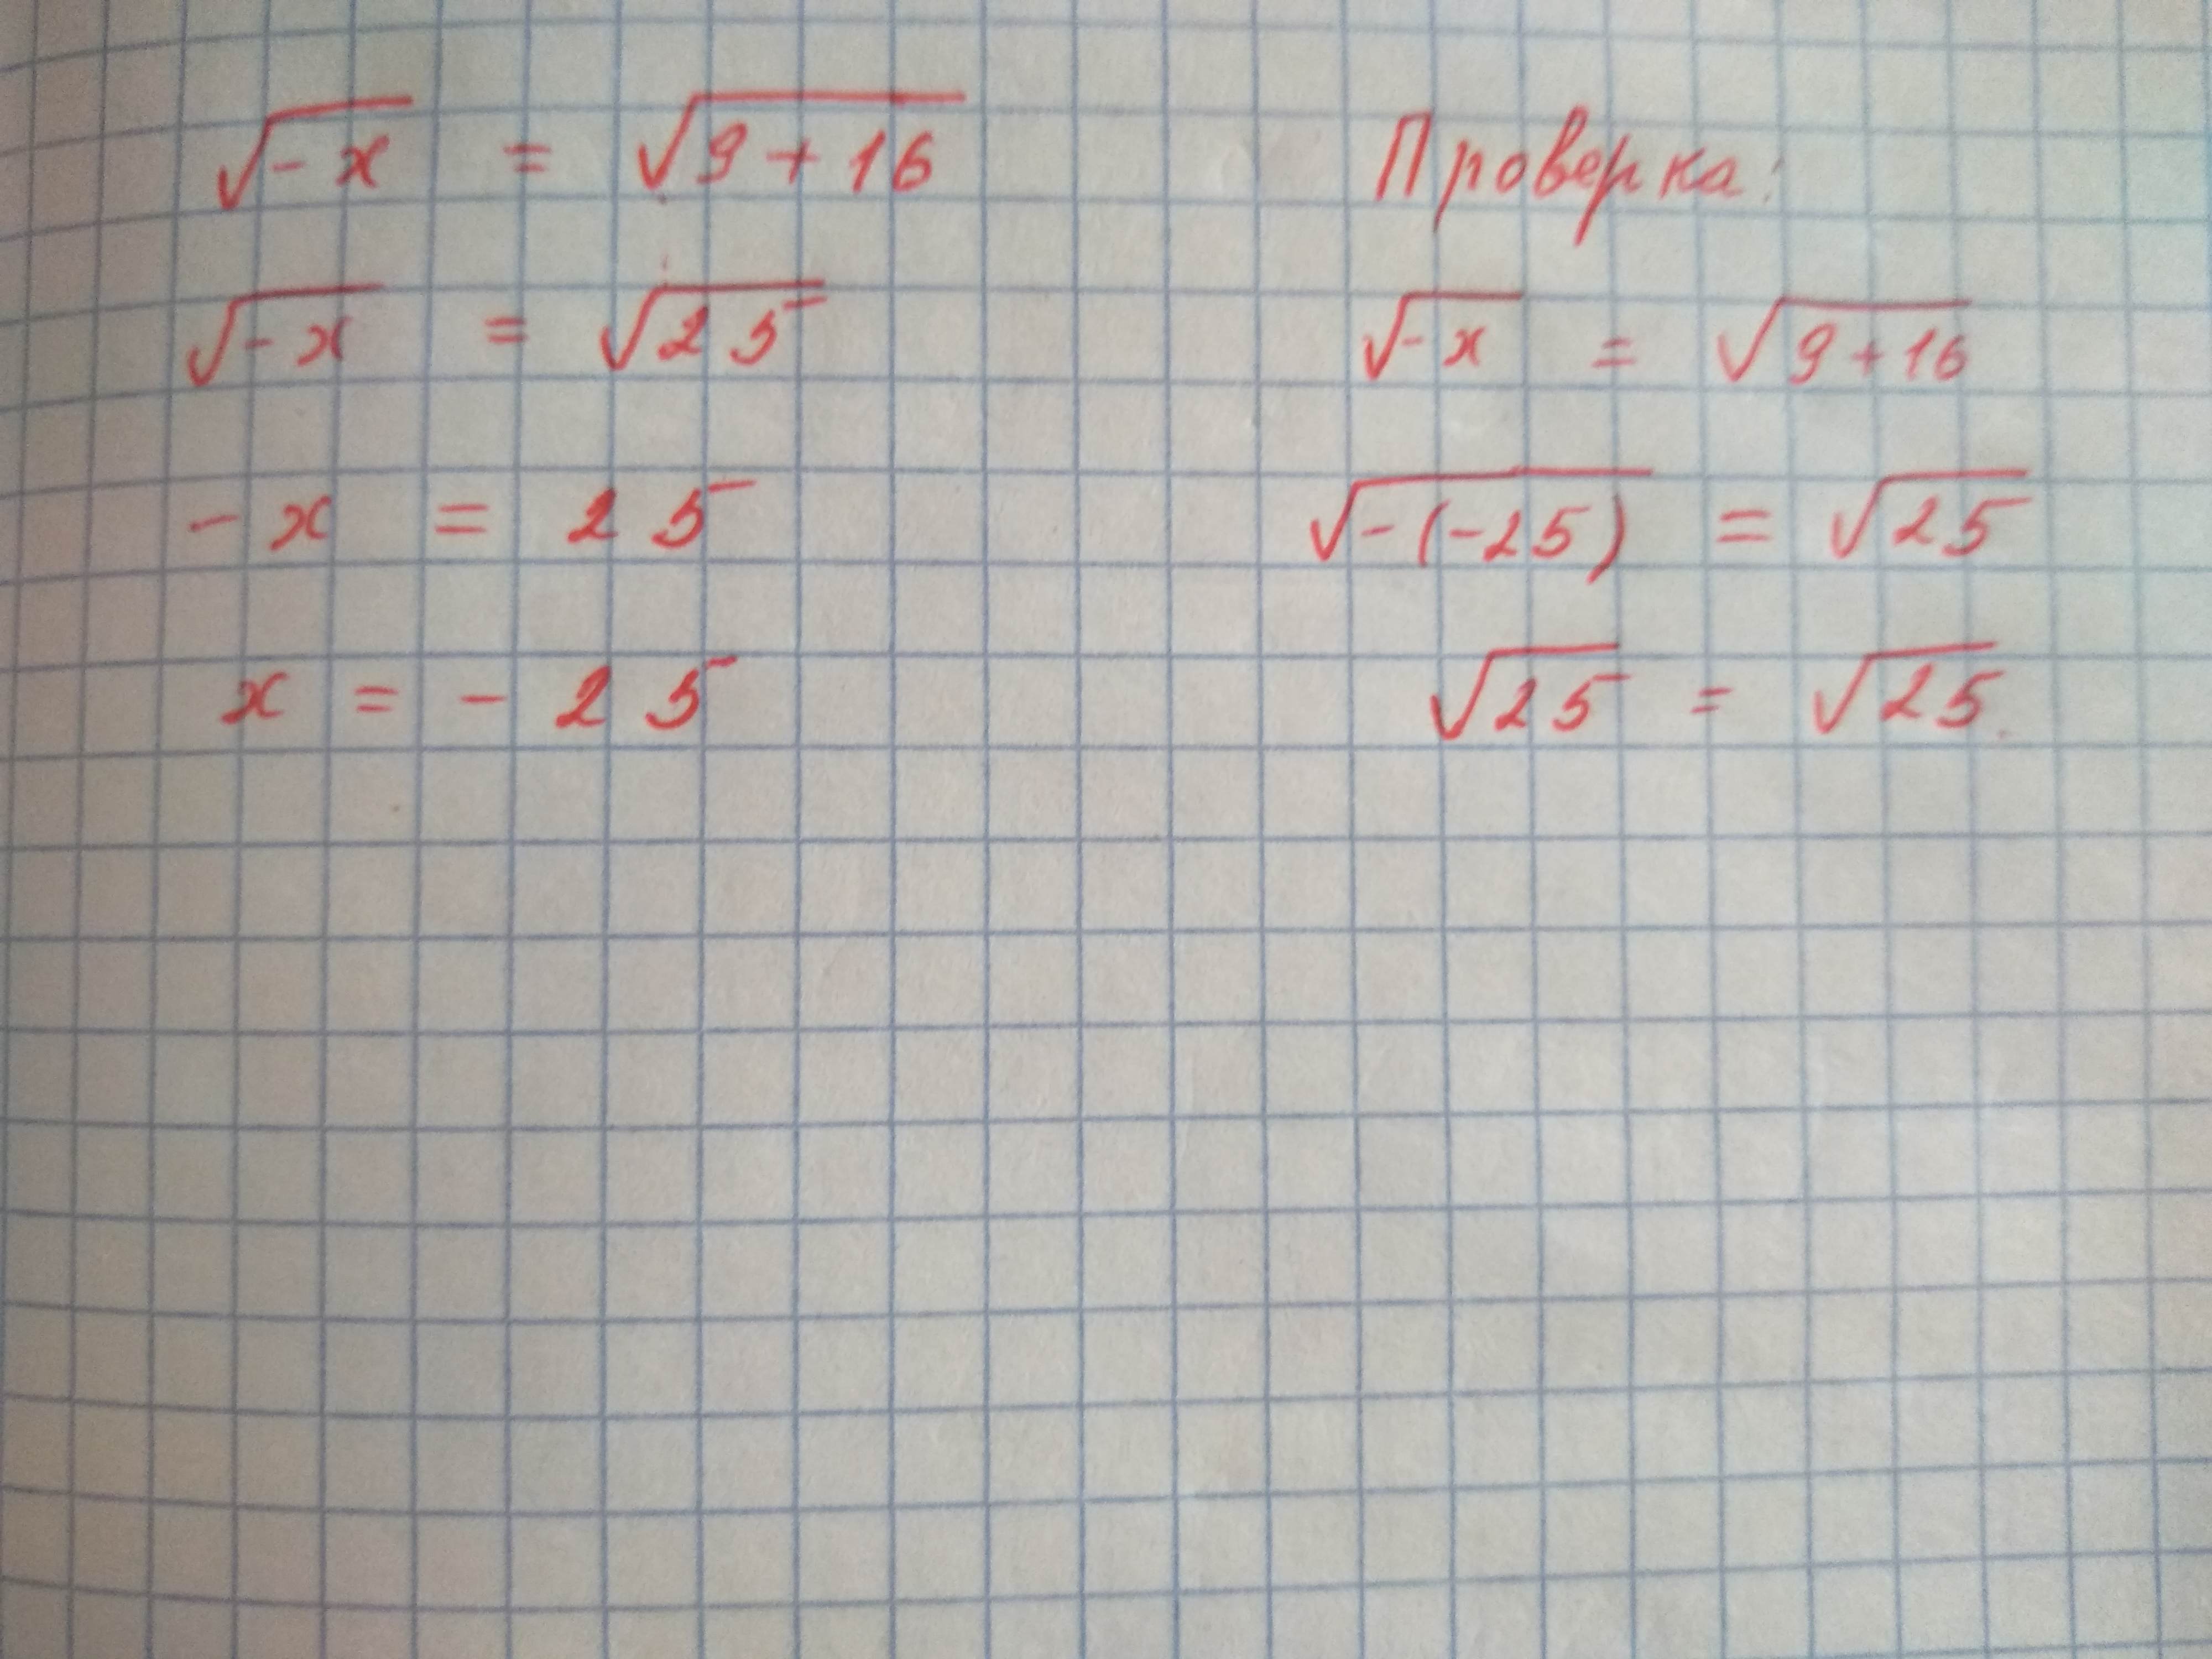 √-x = √9+16
√-x = √25
-x = 25
x = -25
Проверка:
√-x = √9+16
√-(-25) = √25
√25 = √25.